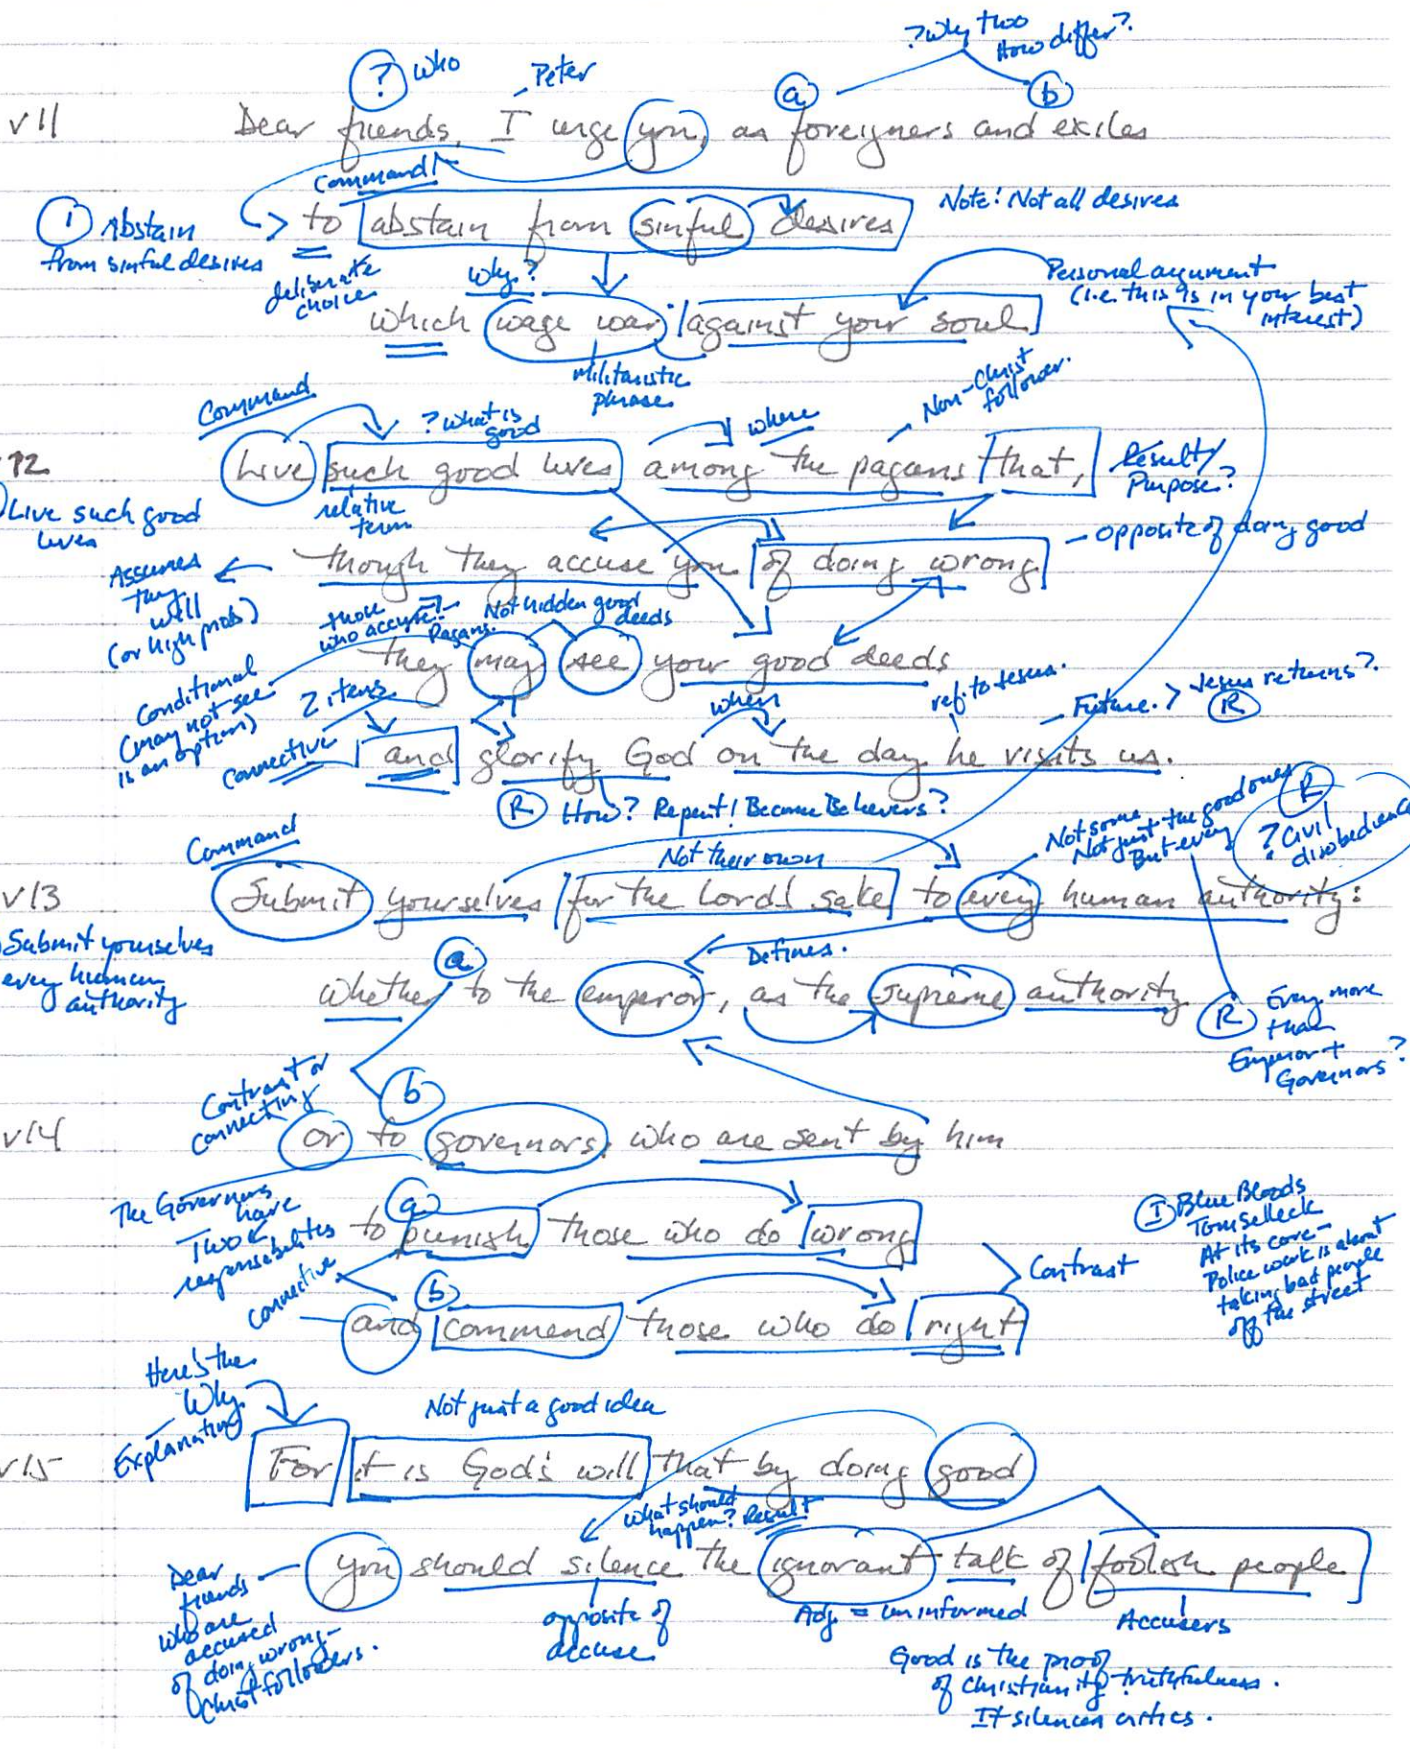 ?Why two
How differ?
? Who
Peter
a
b
v11 Dear friends, I urge you, as foreigners and exiles
Command!
1 Abstain from sinful desires
to abstain from sinful desires
Note! Not all desires
deliberate choice
Why?
Personal argument
(i.e. this is in your best interest)
which wage war against your soul
militaristic phrase
Command
?What is good
where
Non-Christ follower.
12 Live such good lives among the pagans that,
Result/
Purpose?
relative term
Live such good lives
though they accuse you of doing wrong
- opposite of doing good
Assumes they will
(or high prob)
those who accuse? - Pagans.
Not hidden good deeds
they may see your good deeds
Conditional
(may not see is an option)
2 items
when
ref. to Jesus.
- Future. > Jesus returns?
R
connective
and glorify God on the day he visits us.
R How? Repent! Become Believers?
Command
Not their own
Not some
Not just the good ones
But every
R
? Civil disobedience
v13 Submit yourselves for the Lord's sake to every human authority:
Submit yourselves
every human
authority
Defines.
a
whether to the emperor, as the supreme authority
R Every more
than
Emperor +
Governors?
Contrast or
connecting
b
v14 or to governors, who are sent by him
The Governors
have
Two
responsibilites
a
to punish those who do wrong
connective
b
Contrast
I Blue Bloods
Tom Selleck
At its core -
Police work is about
taking bad people
off the street
and commend those who do right
Here's the
Why
Explanation
Not just a good idea
v15 For it is God's will that by doing good
What should
happen? Result
you should silence the ignorant talk of foolish people
Dear
friends
who are
accused
of doing wrong -
Christ followers.
opposite of
accuse
Adj = uninformed
Accusers
Good is the proof
of Christianity truthfulness.
It silences critics.